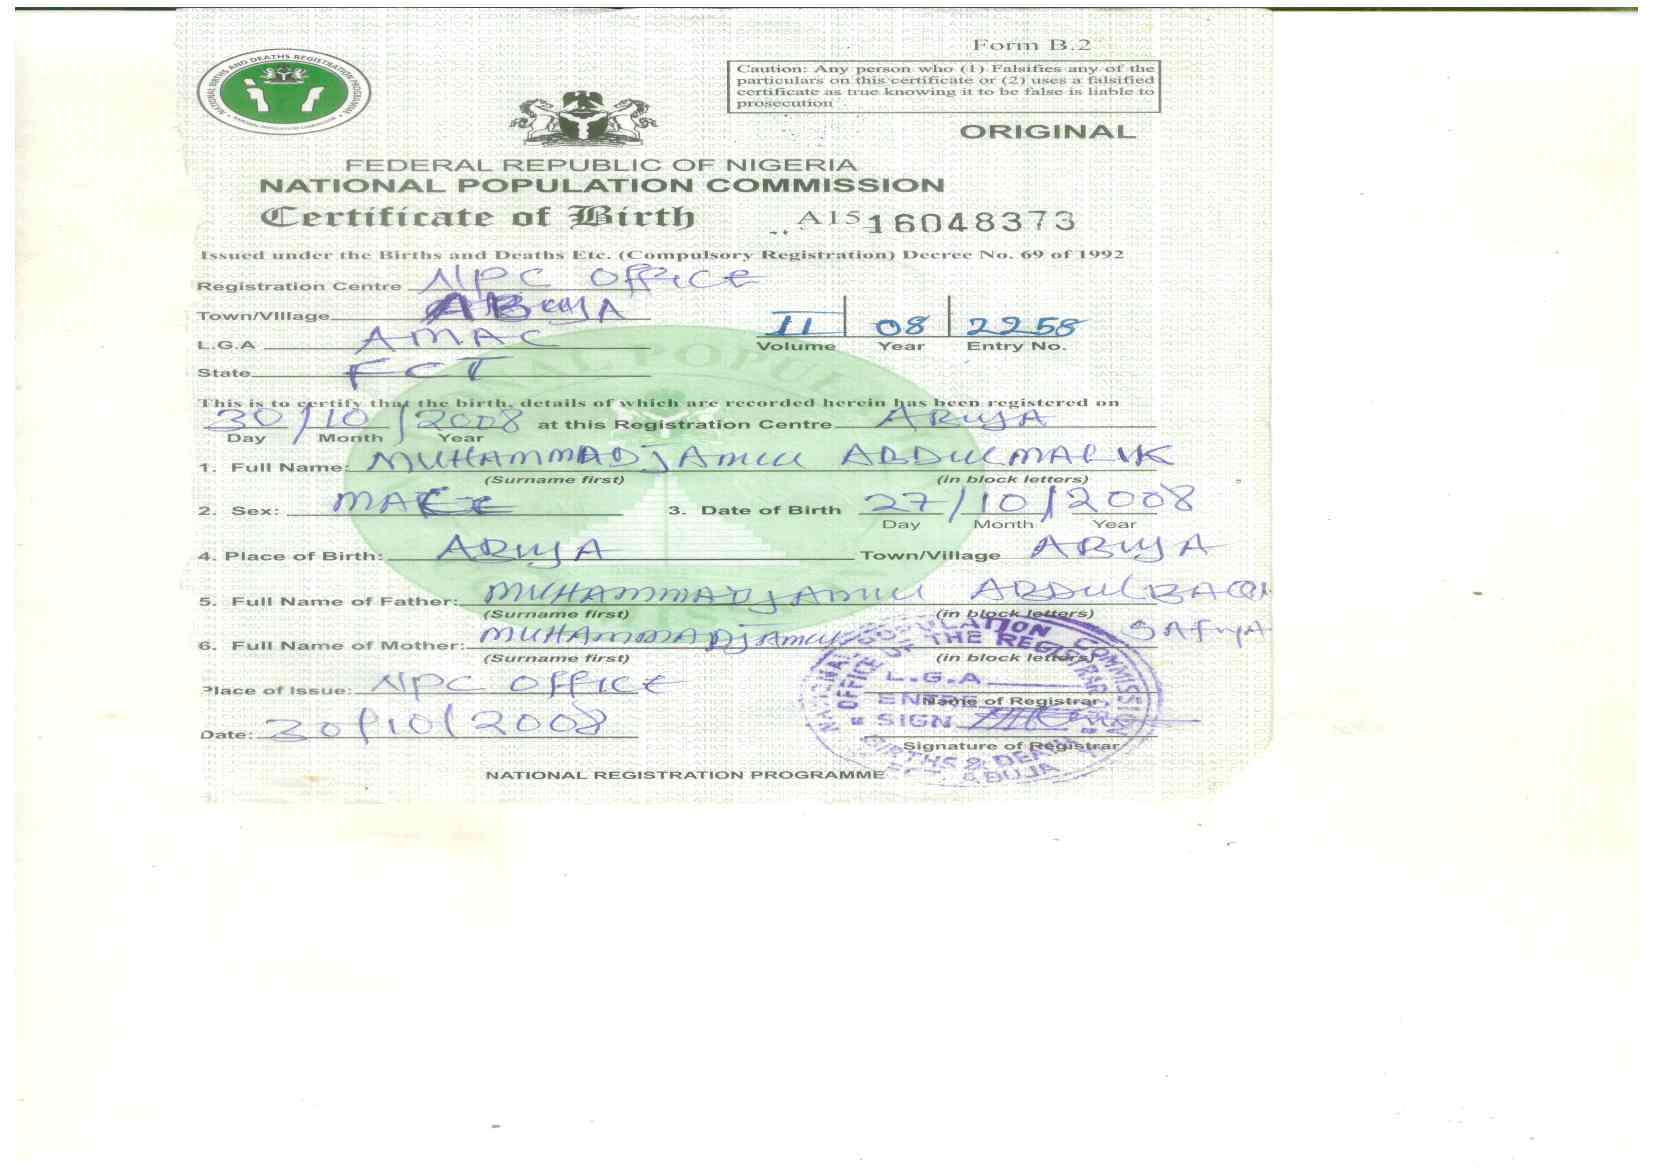 Form B.2
NATIONAL BIRTHS AND DEATHS REGISTRATION PROGRAMME
NATIONAL POPULATION COMMISSION
Caution: Any person who (1) Falsifies any of the
particulars on this certificate or (2) uses a falsified
certificate as true knowing it to be false is liable to
prosecution
ORIGINAL
FEDERAL REPUBLIC OF NIGERIA
NATIONAL POPULATION COMMISSION
Certificate of Birth A15 16048373
Issued under the Births and Deaths Etc. (Compulsory Registration) Decree No. 69 of 1992
Registration Centre NPC OFFICE
Town/Village ABUJA
II 08 2258
Volume Year Entry No.
L.G.A AMAC
State FCT
This is to certify that the birth, details of which are recorded herein has been registered on
30/10/2008 at this Registration Centre ABUJA
Day Month Year
1. Full Name: MUHAMMADJAMIU ABDULMALIK
(Surname first) (in block letters)
2. Sex: MALE 3. Date of Birth 27/10/2008
Day Month Year
4. Place of Birth: ABUJA Town/Village ABUJA
5. Full Name of Father: MUHAMMADJAMIU ABDULBAQI
(Surname first) (in block letters)
6. Full Name of Mother: MUHAMMADJAMIU SAFIYA
(Surname first) (in block letters)
Place of Issue: NPC OFFICE
Name of Registrar
Date: 30/10/2008
Signature of Registrar
NATIONAL REGISTRATION PROGRAMME
NATIONAL POPULATION COMMISSION
OFFICE OF THE REGISTRAR
L.G.A
SIGN
BIRTHS & DEATHS
ABUJA